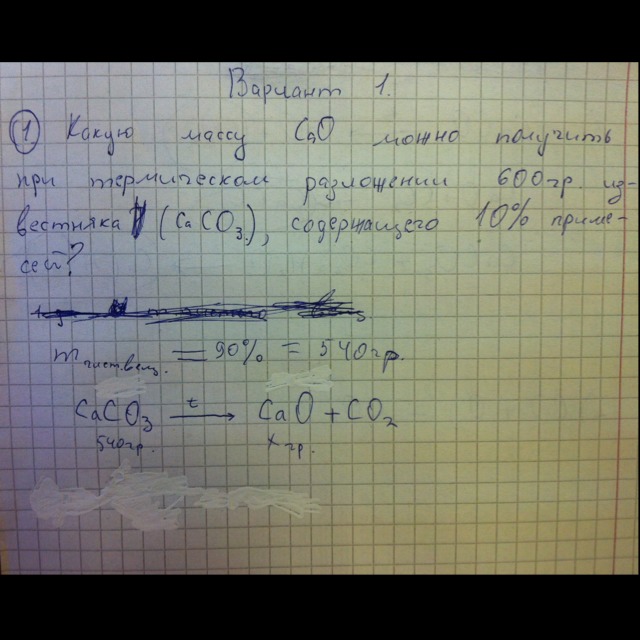 Вариант 1.
① Какую массу CaO можно получить
при термическом разложении 600гр. из-
вестняка (CaCO₃), содержащего 10% приме-
сей?
m чист.вещ. = 90% = 540гр.
CaCO₃ t→ CaO + CO₂
540гр. x гр.